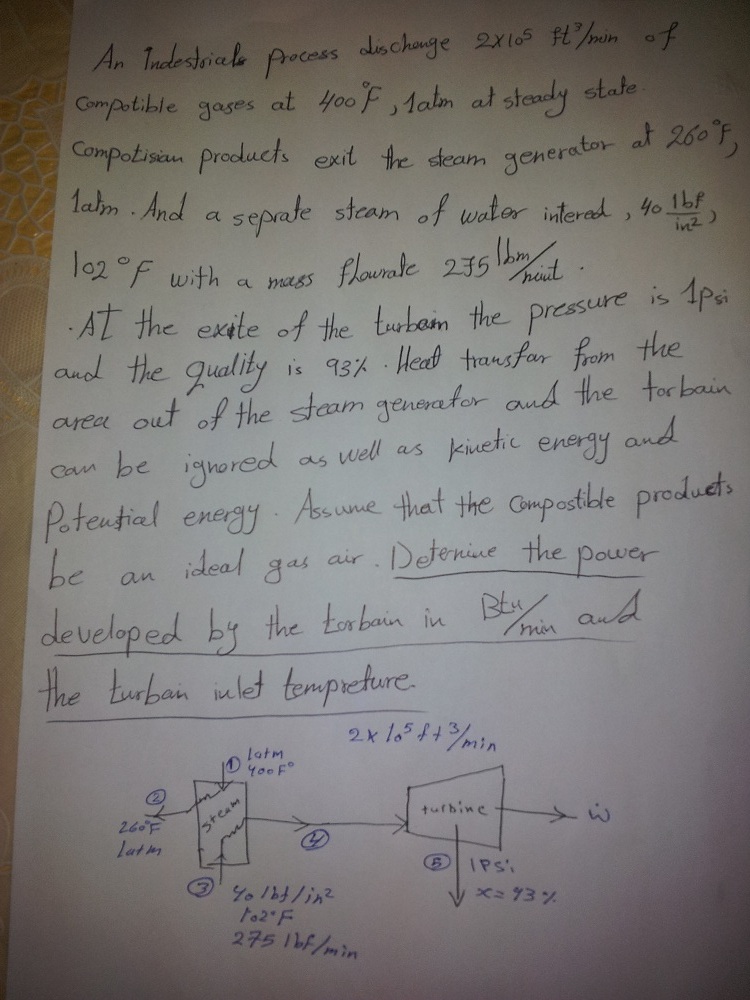 An Indestrials process discharge 2x10⁵ ft³/min of
compotible gases at 400°F, 1atm at steady state.
Compotisian products exit the steam generator at 260°F,
1atm. And a seprate steam of water intered, 40 lbf/in²,
102°F with a mass flowrate 275 lbm/miut.
. AT the exite of the turbain the pressure is 1psi
and the quality is 93%. Heat transfar from the
area out of the steam generator and the torbain
can be ignored as well as kinetic energy and
Potential energy. Assume that the compostible products
be an ideal gas air. Detenine the power
developed by the torbain in Btu/min and
the turbain inlet tempreture.
2x10⁵ ft³/min
① 1atm
400F°
②
260°F
1atm
steam
④
turbine
ẇ
③ 40 lbf/in²
102°F
275 lbf/min
⑤ 1PSi
x=93%